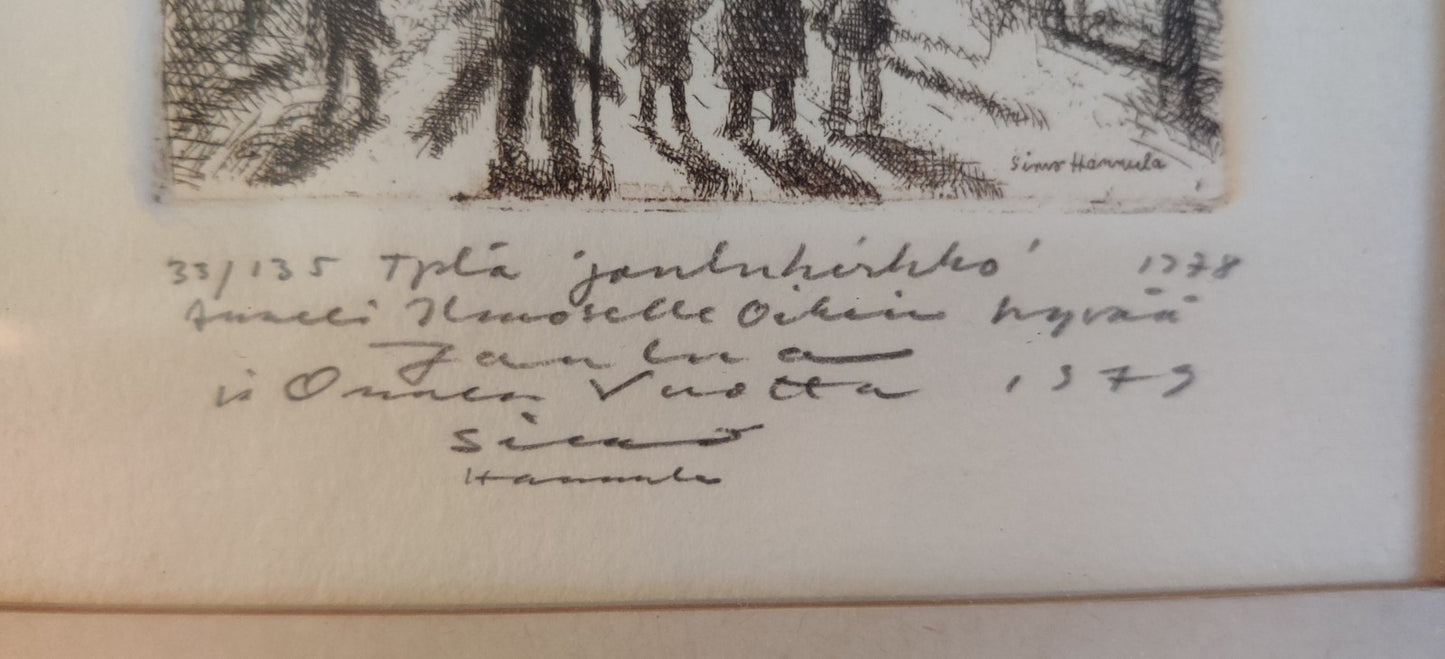 Simo Hannula
33/135 Tpla 'joulukirkko' 1978
Anneli Ilmoselle Oikein hyvää
Joulua
ja Onnea Vuotta 1979
Simo
Hannula